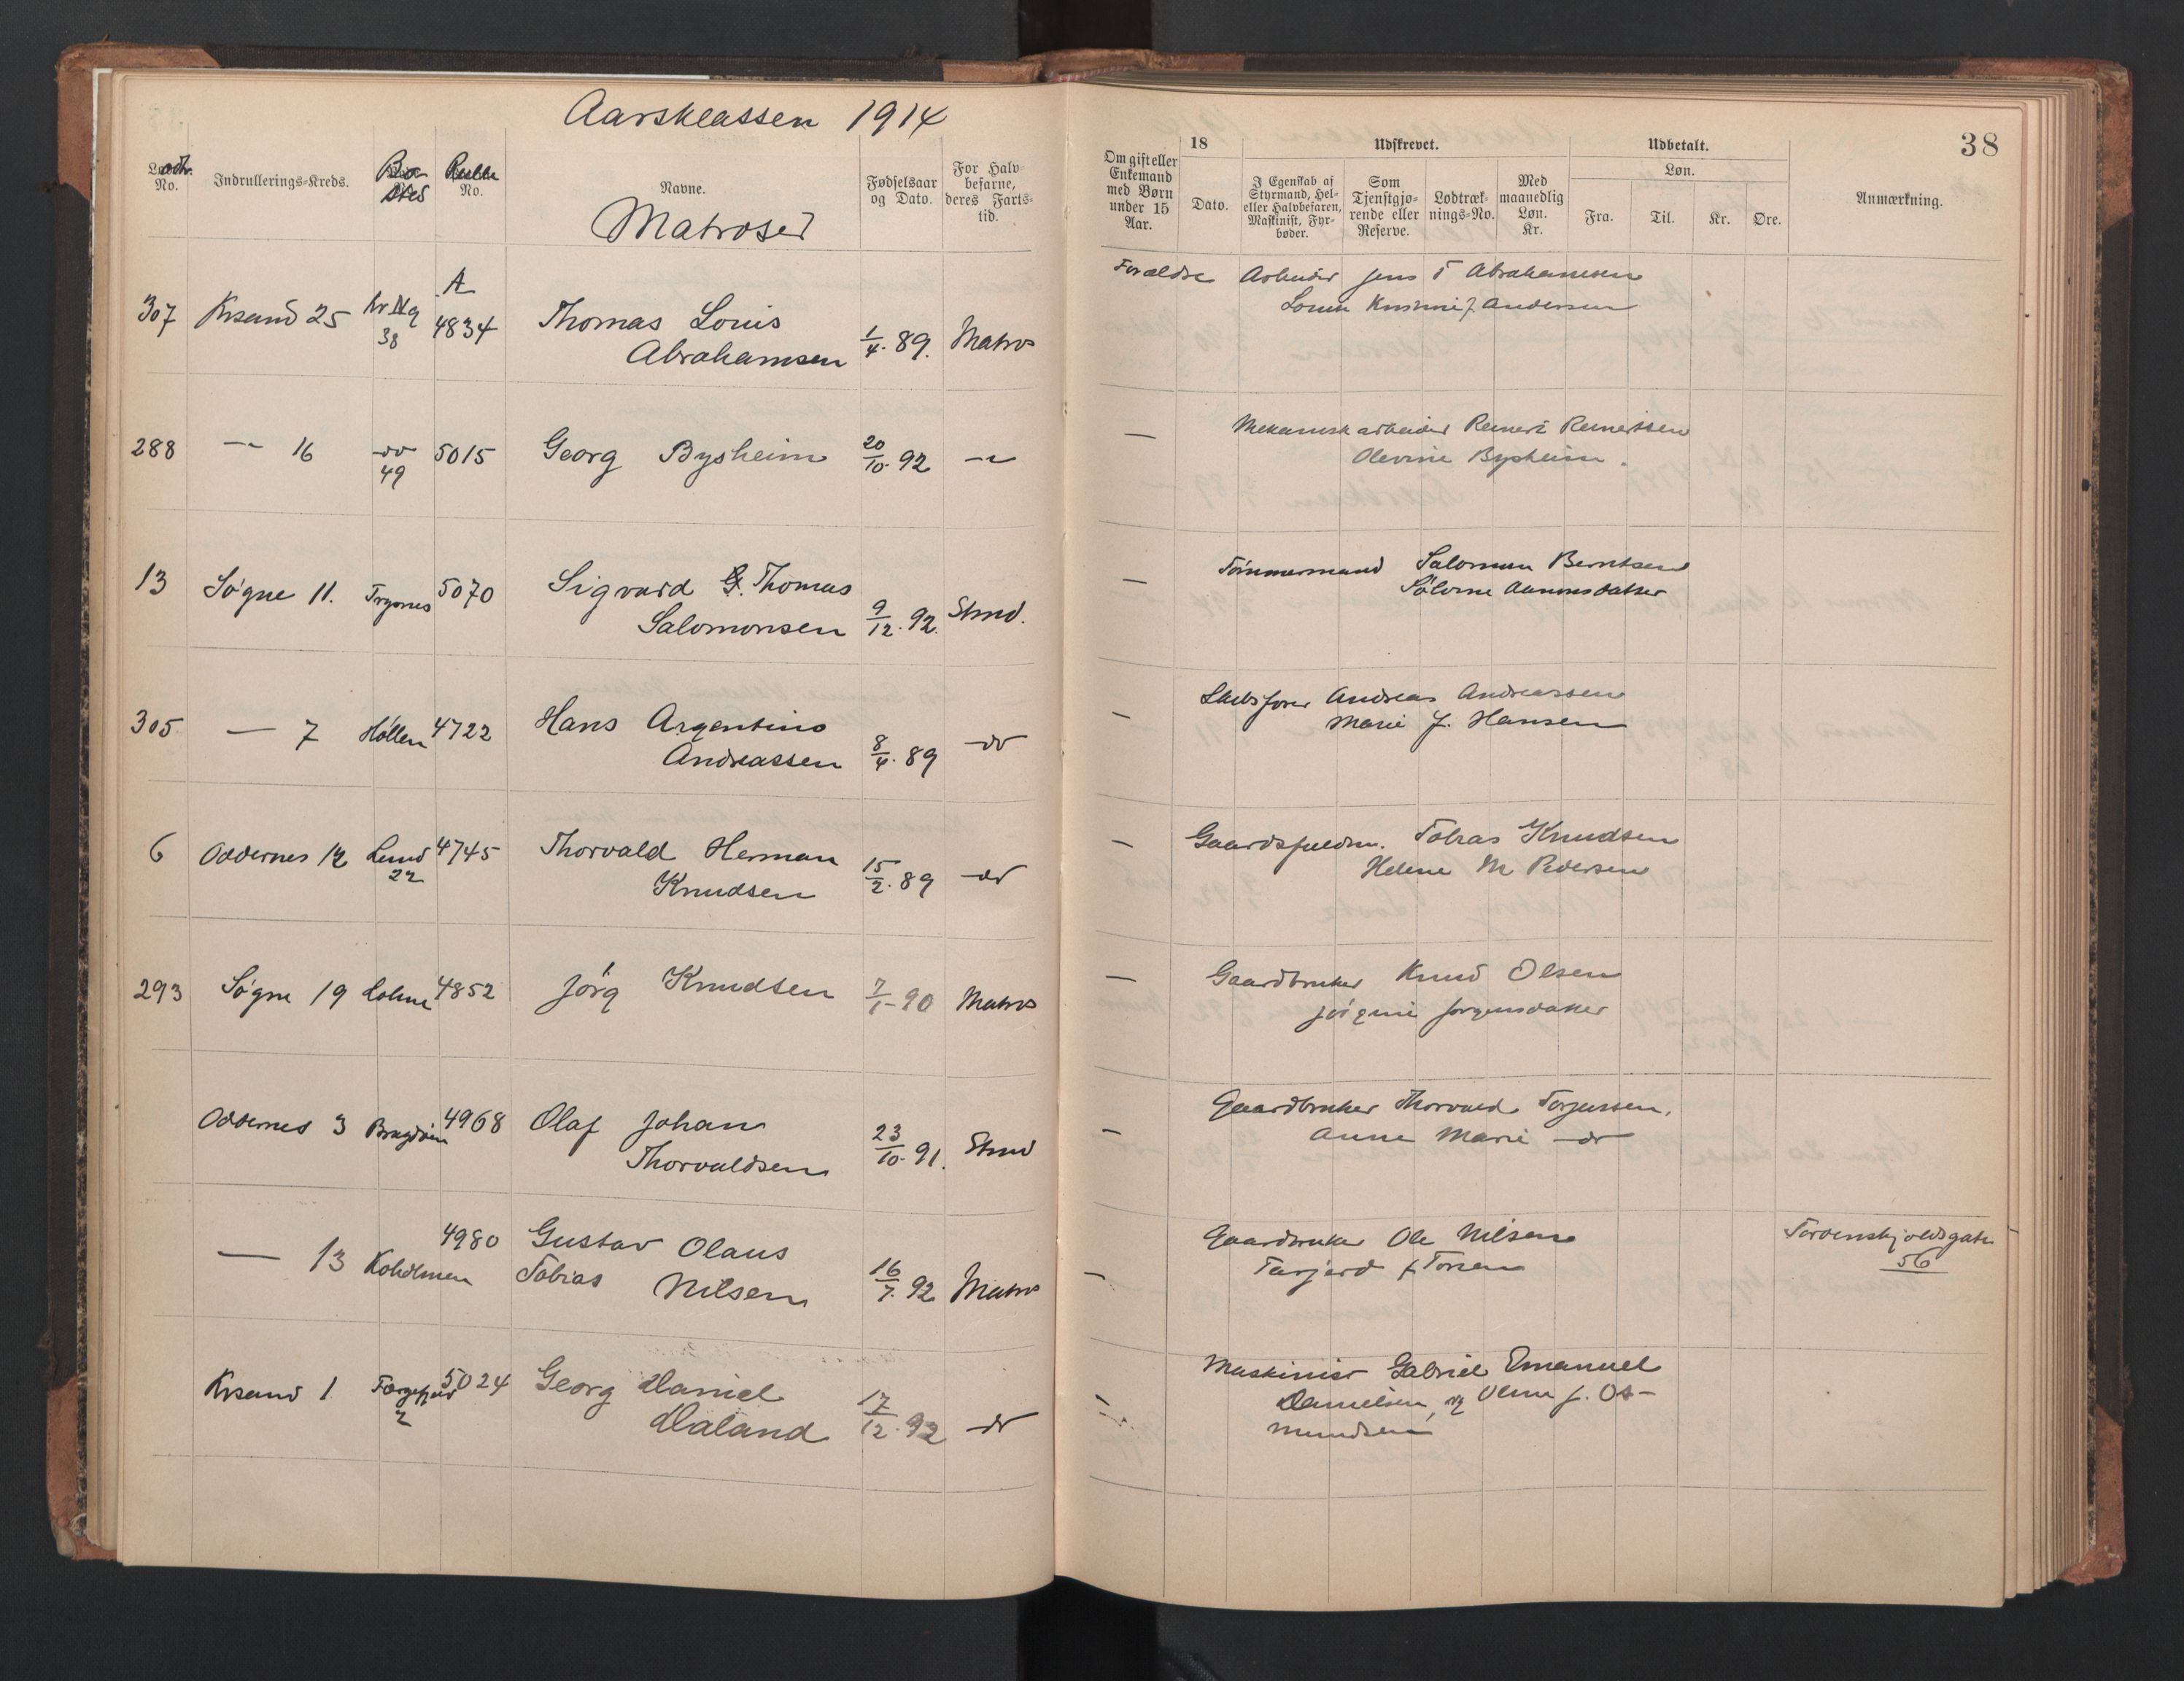 Aarsklassen 1914
38
Lodtr. No.
Indrullerings-Kreds.
Bo-sted
Rulle No.
Navne.
Matroser
Fødselsaar og Dato.
For Halvbefarne, deres Fartstid.
Om gift eller Enkemand med Børn under 15 Aar.
18
Dato.
Udskrevet.
I Egenskab af Styrmand, Hel- eller Halvbefaren, Maskinist, Fyrbøder.
Som Tjenstgjørende eller Reserve.
Lodtræknings-No.
Med maanedlig Løn. Kr.
Udbetalt.
Løn.
Fra.
Til.
Kr.
Øre.
Anmærkning.
307 Krsand 25 38 A 4834 Thomas Louis
Abrahamsen 1/4. 89. Matros
Forældre Arbeider Jens T Abrahamsen
Andersen
288 — 16 do 49 5015 Georg Bysheim 20/10. 92 —
— Mekanisk arbeider Reinert Reinertsen
Olevine Bysheim.
13 Søgne 11. Trysnes 5070 Sigvard G. Thomas
Salomonsen 9/12. 92. Stmd.
— Tømmermand Salomon Berntsen
305 — 7 Høllen 4722 Hans Argentino
Andreassen 8/4. 89 do
— Skibsfører Andreas Andreassen
Marie J. Hansen
6 Oddernes 12 Lund 22 4745 Thorvald Herman
Knudsen 15/2. 89 do
— Gaardsfuldm. Tobias Knudsen
Helene M Pedersen
293 Søgne 19 Lohne 4852 Jørg Knudsen 7/1-90 Matros
— Gaardbruker Knud Olsen
Jørgine Jørgensdatter
Oddernes 3 Bragdøen 4968 Olaf Johan
Thorvaldsen 23/10. 91. Stmd
— Gaardbruker Thorvald Torjussen.
Anne Marie do
— 13 Koholmen 4980 Gustav Olaus
Tobias Nilsen 16/7. 92 Matros
— Gaardbruker Ole Nilsen
Tordenskjoldsgate
56
Krsand 1 2 5024 Georg Daniel
Daland 17/12. 92 do
— Maskinist Gabriel Emanuel
Danielsen, og J. Os-
mundsen